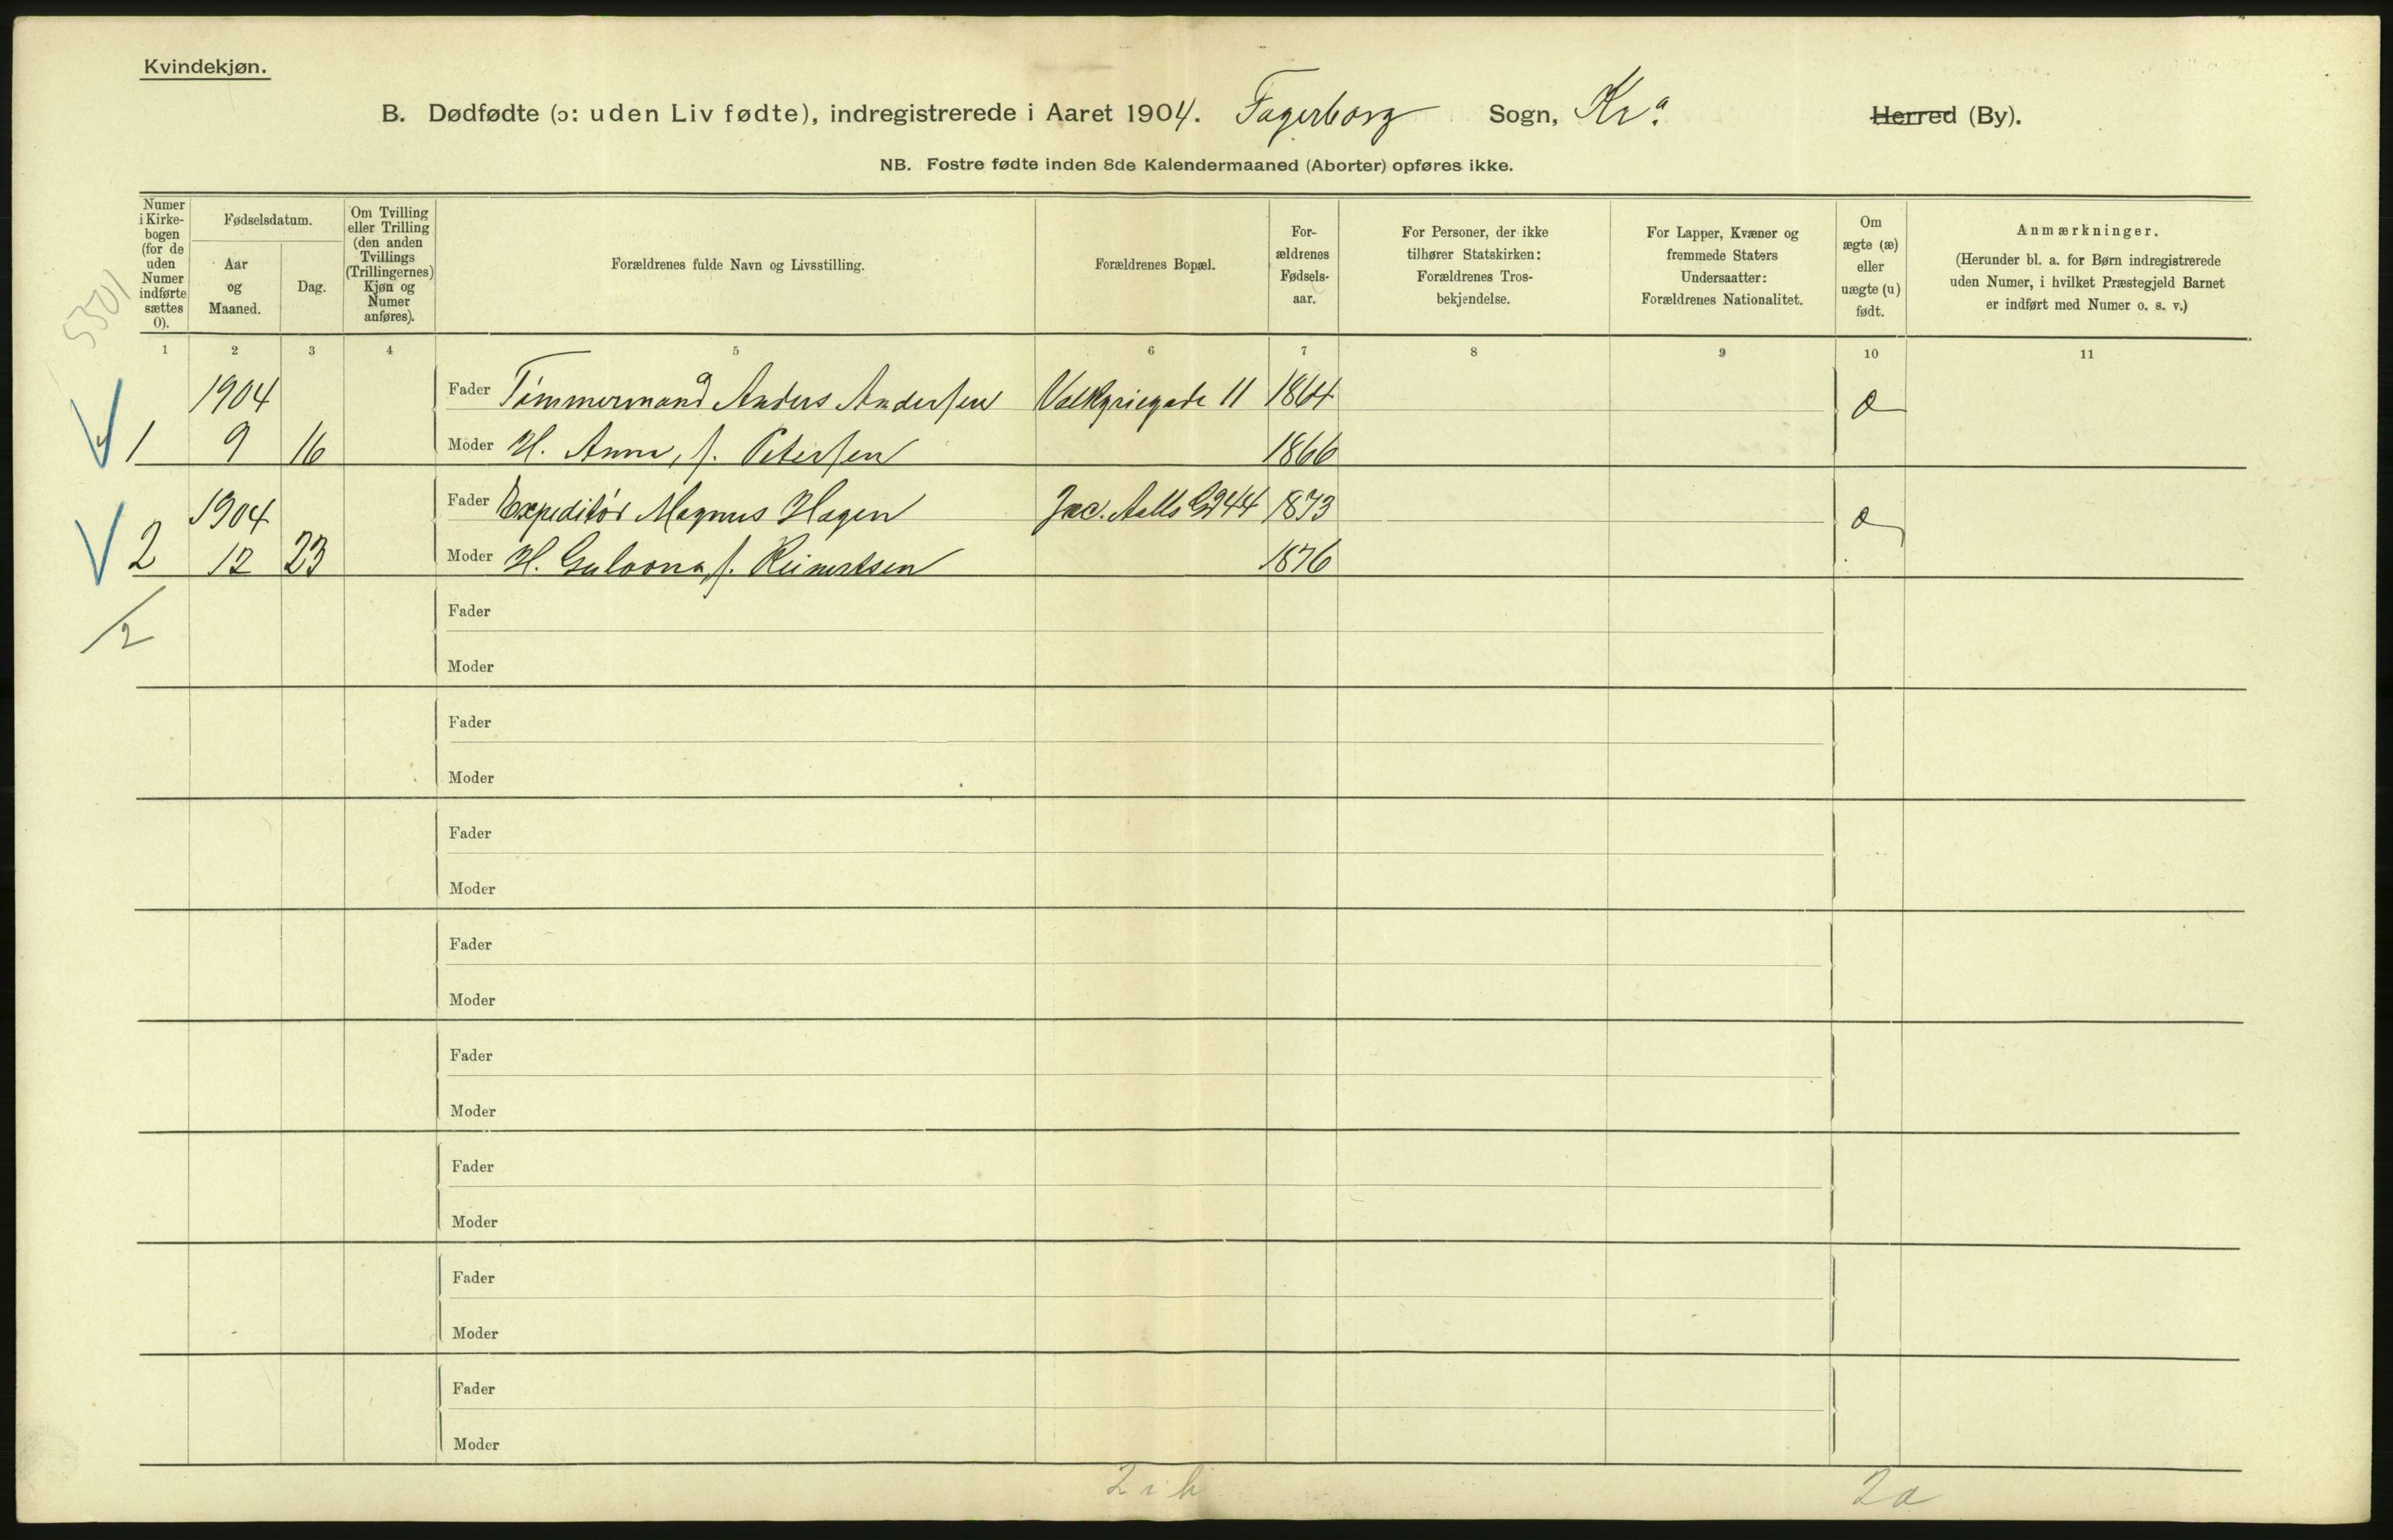 Kvindekjøn.
B. Dødfødte (ɔ: uden Liv fødte), indregistrerede i Aaret 1904. Fagerborg Sogn, Kr.a Herred (By).
NB. Fostre fødte inden 8de Kalendermaaned (Aborter) opføres ikke.
Numer
i Kirke-
bogen
(for de
uden
Numer
indførte
sættes
0).
Fødselsdatum.
Aar
og
Maaned.
Dag.
Om Tvilling
eller Trilling
(den anden
Tvillings
(Trillingernes)
Kjøn og
Numer
anføres).
Forældrenes fulde Navn og Livsstilling.
Forældrenes Bopæl.
For-
ældrenes
Fødsels-
aar.
For Personer, der ikke
tilhører Statskirken:
Forældrenes Tros-
bekjendelse.
For Lapper, Kvæner og
fremmede Staters
Undersaatter:
Forældrenes Nationalitet.
Om
ægte (æ)
eller
uægte (u)
født.
Anmærkninger.
(Herunder bl. a. for Børn indregistrerede
uden Numer, i hvilket Præstegjeld Barnet
er indført med Numer o. s. v.)
5501
1 2 3 4 5 6 7 8 9 10 11
1904 Fader Tømmermand Anders Andersen Valkyriegade 11 1864 æ
1 9 16 Moder H. Anna, f. Petersen 1866
1904 Fader Expeditør Magnus Hagen Jac. Aalls Gd 44 1873 æ
2 12 23 Moder H. f. Reinertsen 1876
2
Fader
Moder
Fader
Moder
Fader
Moder
Fader
Moder
Fader
Moder
Fader
Moder
Fader
Moder
Fader
Moder
2 i b 2æ